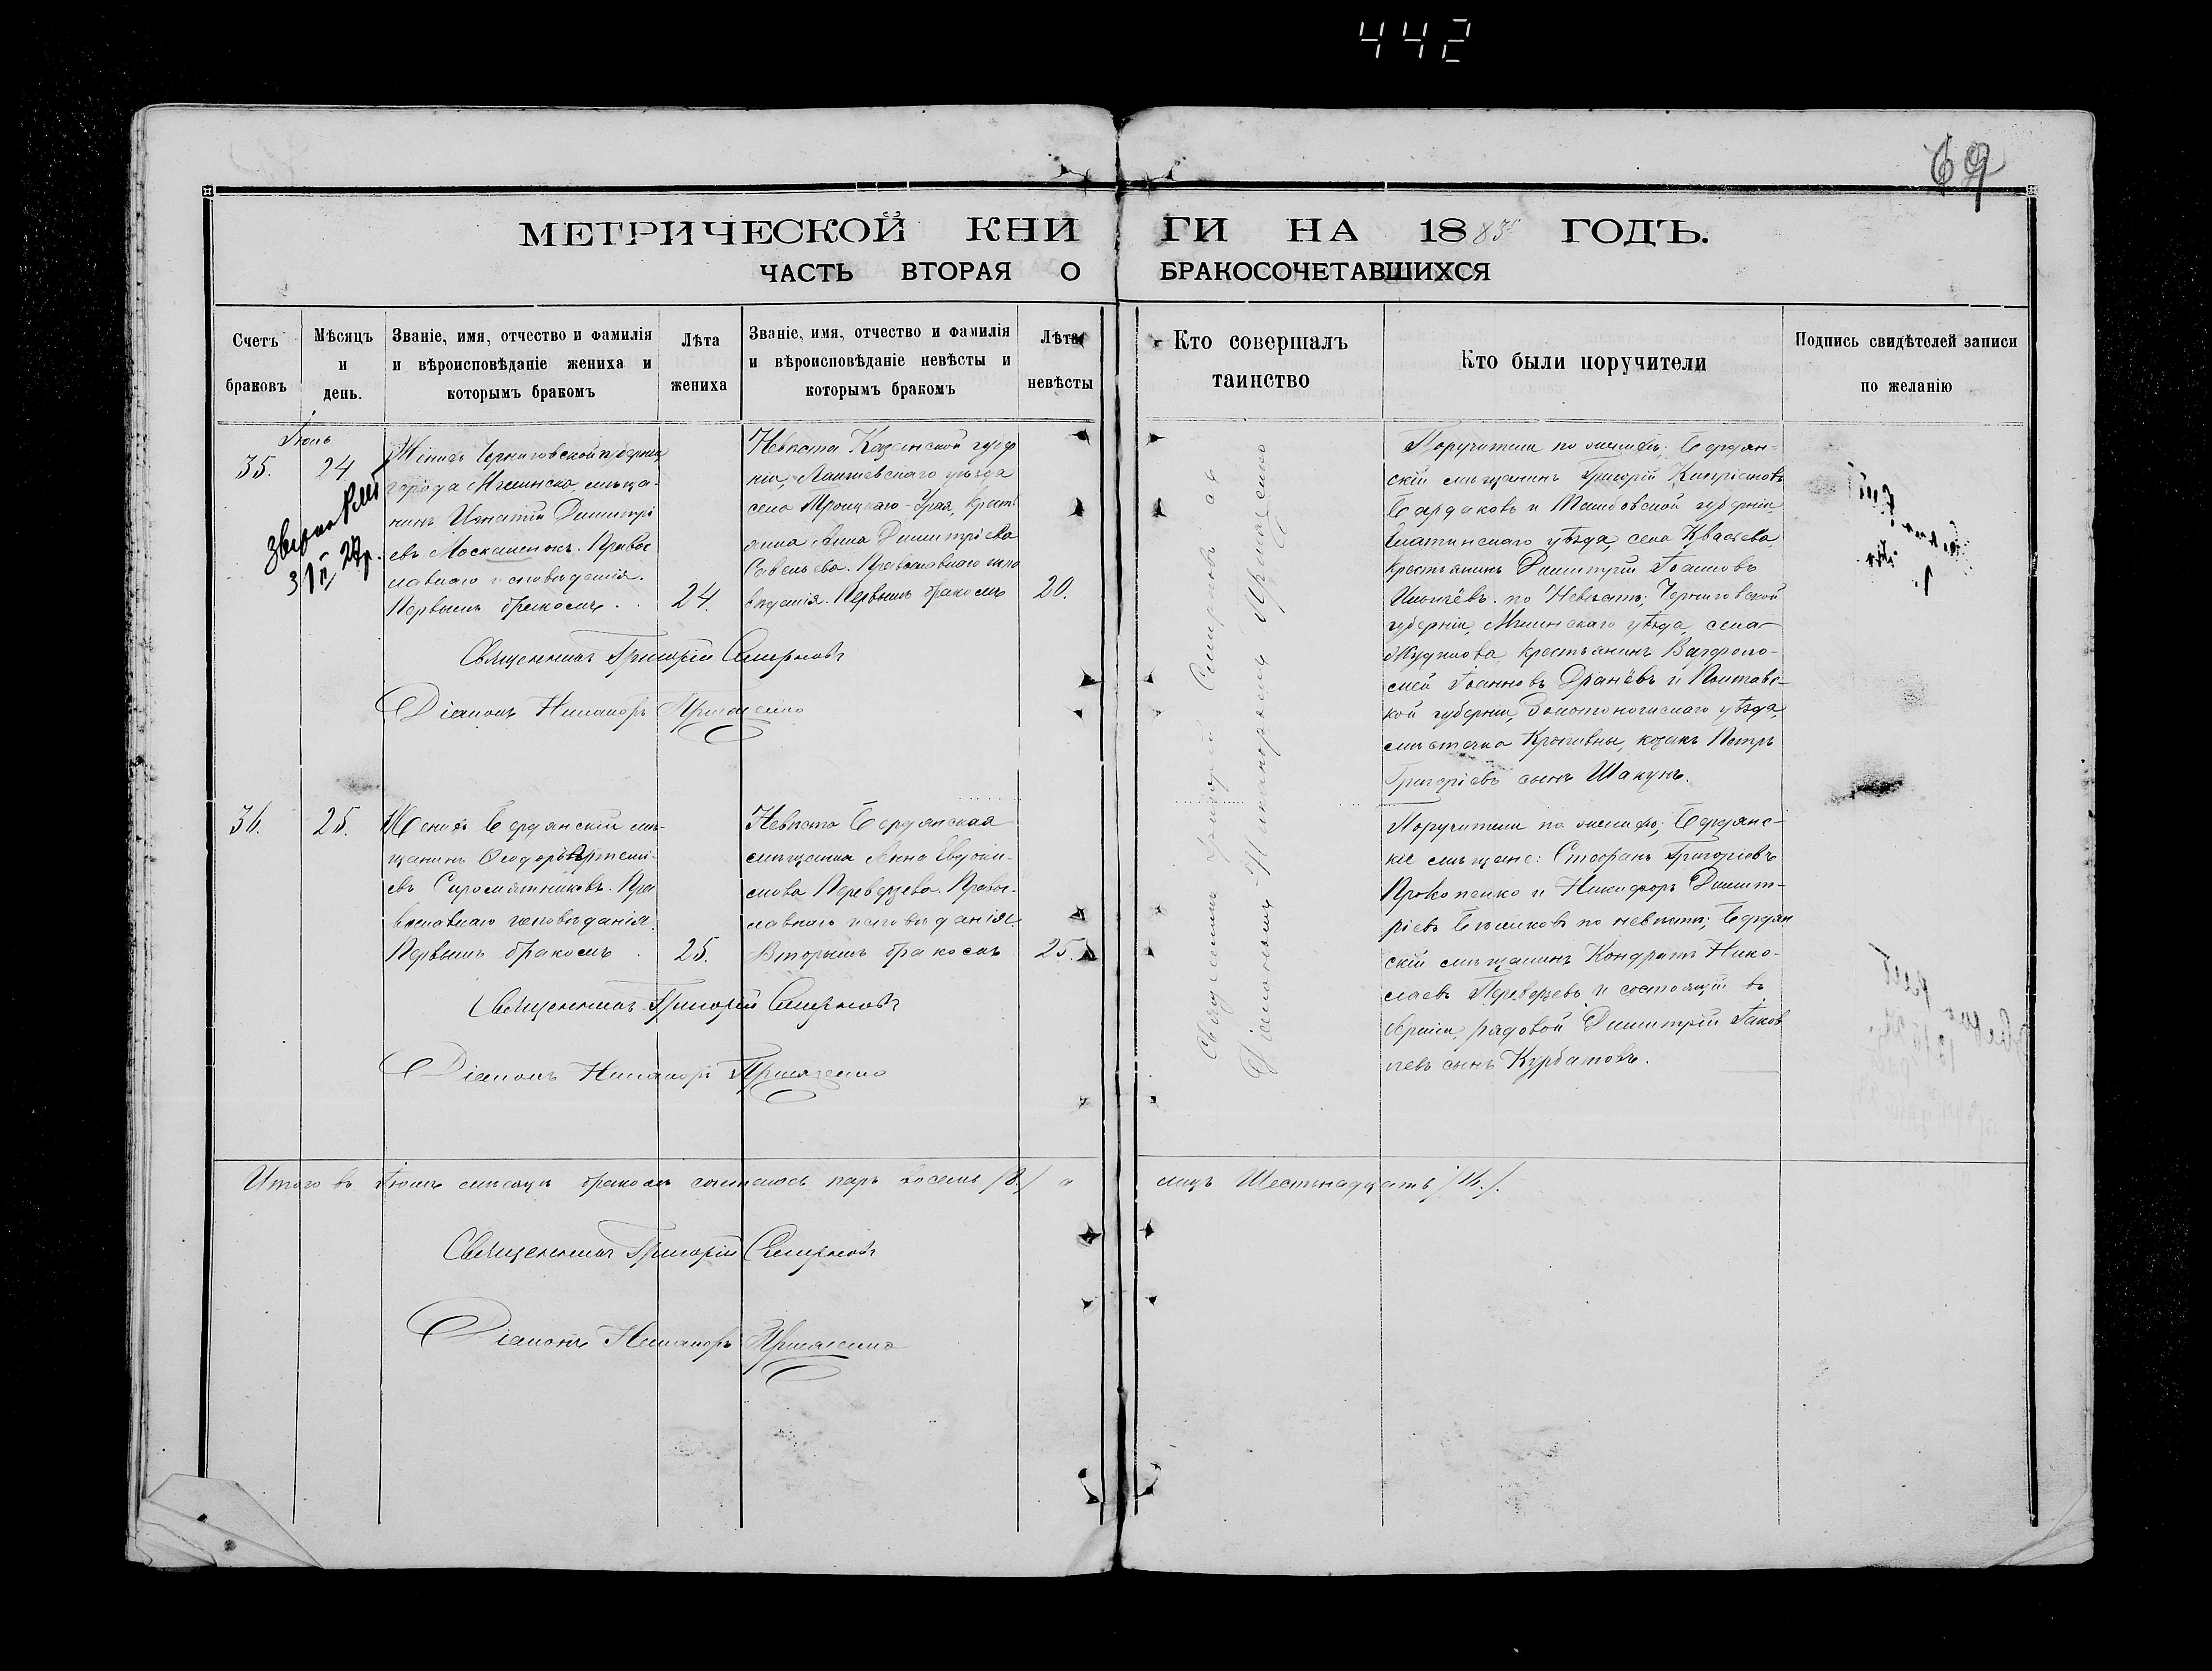 442
69
МЕТРИЧЕСКОЙ КНИГИ НА 1883 ГОДЪ.
ЧАСТЬ ВТОРАЯ О БРАКОСОЧЕТАВШИХСЯ
Счетъ браковъ
Мѣсяцъ и день.
Званіе, имя, отчество и фамилія
и вѣроисповѣданіе жениха и
которымъ бракомъ
Лѣта жениха
Званіе, имя, отчество и фамилія
и вѣроисповѣданіе невѣсты и
которымъ бракомъ
Лѣта невѣсты
Кто совершалъ таинство
Кто были поручители
Подпись свидѣтелей записи
по желанію
35.
24
Женихъ Черниговской губерніи
города Мглинска, мѣща-
нинъ Игнатій Димитрі
евъ Православнаго исповѣданія.
Первымъ бракомъ.
24.
Невѣста Казанской губер
ніи, Лаишевскаго уѣзда
села Троицкаго-Урая, крестъ
янка Анна Димитріева
Савельева. Православнаго испо
вѣданія. Первымъ бракомъ
20.
Священникъ Григорій Смирновъ
Діаконъ Никаноръ
Священникъ Григорій Смирновъ съ
Діакономъ Никаноромъ
Поручители по женихѣ; Бердян-
скій мѣщанинъ Григорій Кипріановъ
Бардаковъ и Тамбовской губерніи
Елатомскаго уѣзда, села
Крестьянинъ Димитрій Іоанновъ
по Невѣстѣ; Черниговской
губерніи, Мглинскаго уѣзда, села
крестьянинъ Варфоло-
мей Іоанновъ и Полтавс-
кой губерніи, Золотоношскаго уѣзда,
мѣстечка Кропивны, козакъ Петръ
Григоріевъ сынъ Шакунъ.
36.
25.
Женихъ Бердянскій мѣ-
щанинъ Ѳеодоръ Артемі-
евъ Сыромятниковъ. Пра
вославнаго исповѣданія.
Первымъ бракомъ
25.
Невѣста Бердянская
мѣщанка Анна Евдоки-
мова Переверзева. Правос-
лавнаго исповѣданія.
Вторымъ бракомъ
25.
Поручители по женихѣ; Бердянс-
кіе мѣщане: Стефанъ Григоріевъ
Прокопенко и Никифоръ Димит-
ріевъ по невѣстѣ; Бердян
скій мѣщанинъ Кондратъ Нико-
лаевъ Переверзевъ и состоящій въ
Арміи, рядовой Димитрій Іаков
левъ сынъ Курбатовъ.
Священникъ Григорій Смирновъ
Діаконъ Никаноръ
Итого въ мѣсяцѣ бракомъ паръ восемь /8./ а лицъ Шестнадцать /16./.
Священникъ Григорій Смирновъ
Діаконъ Никаноръ